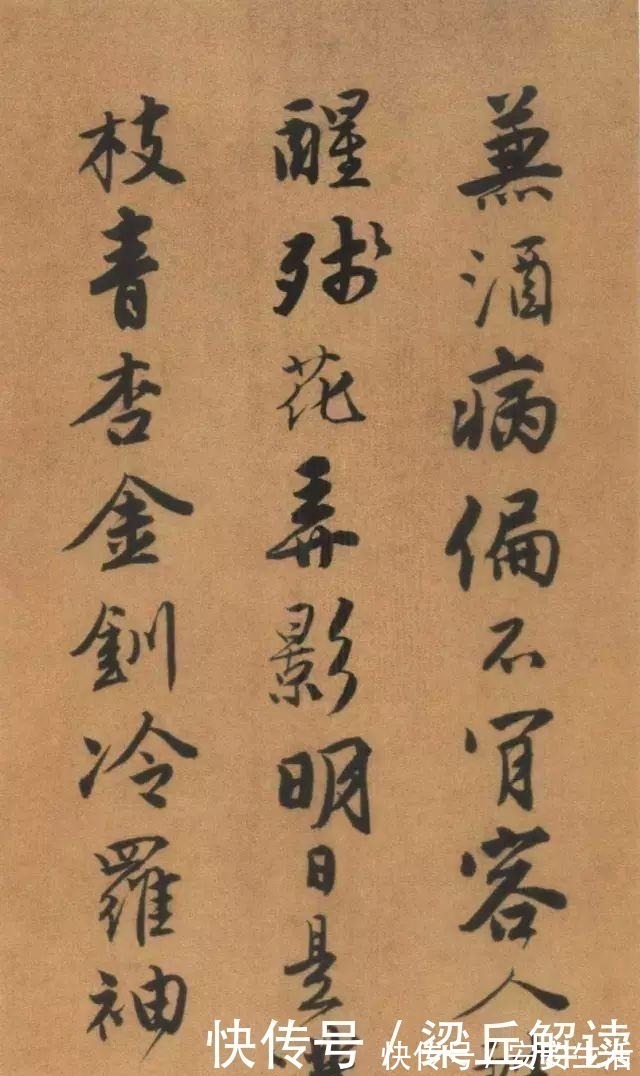 蒹酒病偏不肯容人
醒殘花弄影明日是
枝青杏金釧冷羅袖
快传号 / 梁丘解读
快传号